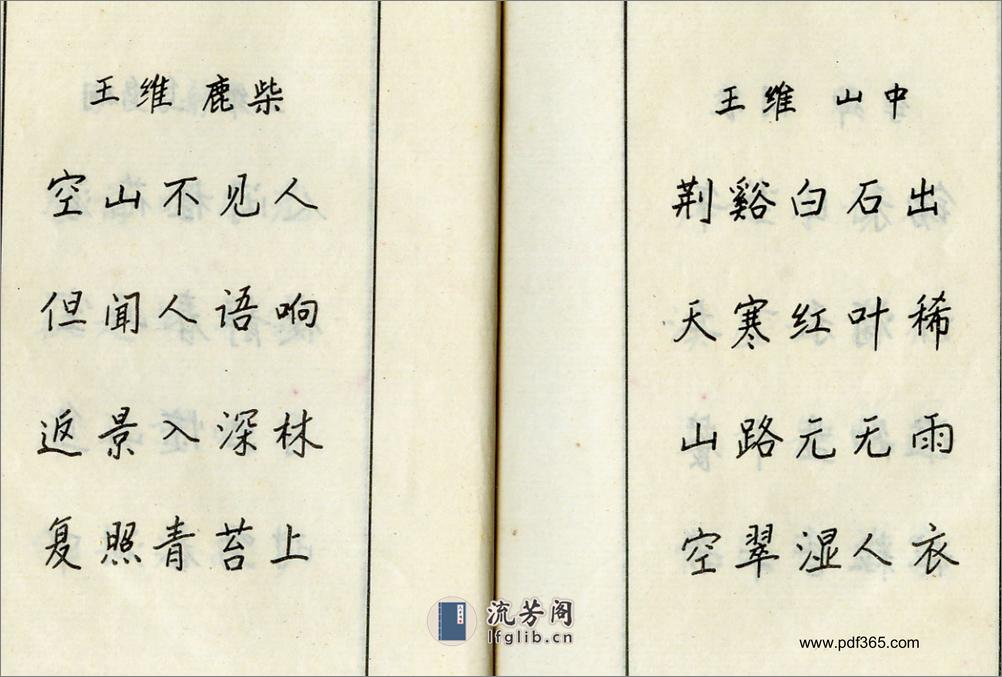 王维 鹿柴
空山不见人
但闻人语响
返景入深林
复照青苔上
王维 山中
荆谿白石出
天寒红叶稀
山路元无雨
空翠湿人衣
流芳阁
lfglib.cn
www.pdf365.com